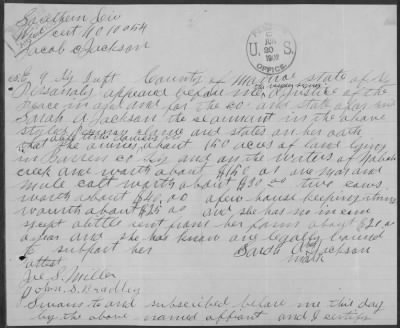 Southern Div
Wid cert No 10054
Jacob C Jackson
U. S.
OFFICE.
County of Monroe State of Ky
Personaly appeared before me a Justice of the
peace in and for the co. and State aforesaid
Sarah A Jackson the claimant in the above
styled Pension claim and states on her oath
that she ownes about 150 acres of land lying
in Barren Co Ky and on the waters of
creek and worth about $150.00 one mare and
mule colt worth about $30.00 two cows
worth about $40.00 a few house keeping items
worth about $25.00 and she has no income
except a little rent from her farm about $20.00
a year and she has know one legally bound
to support her Sarah A Jackson
attest mark
Joe S. Miller
John S. Bradley
Swarn to and subscribed before me this day
by the above named affiant and I certify